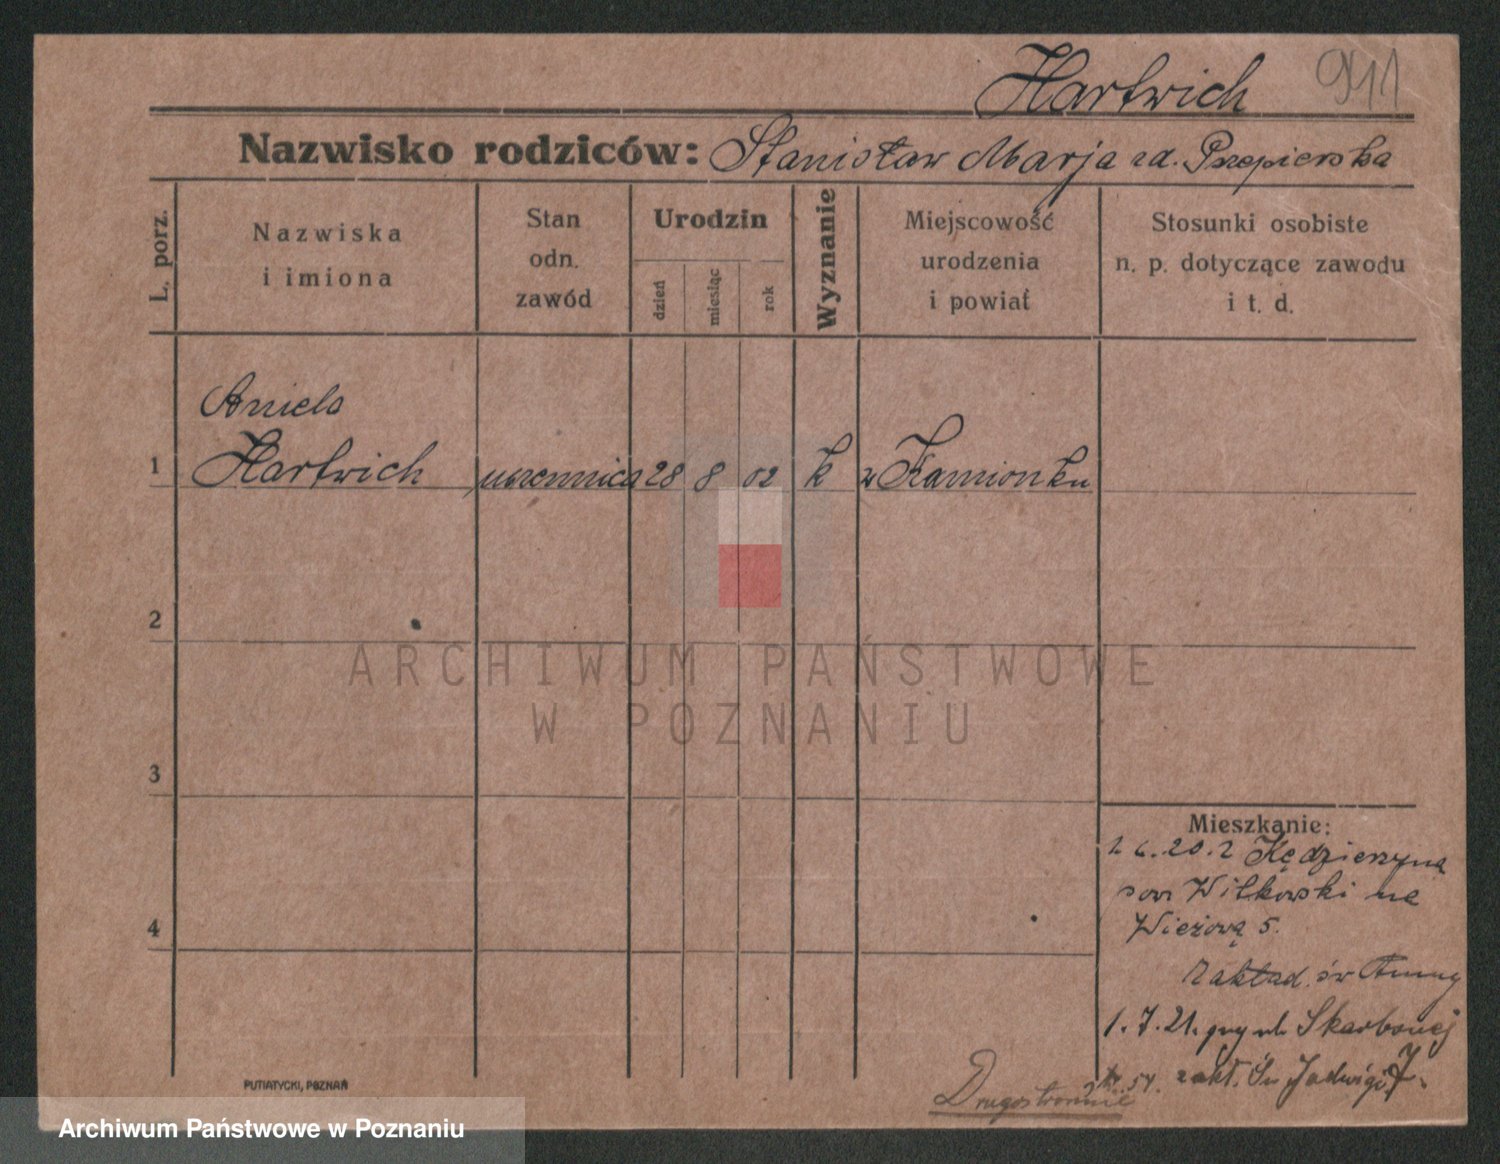 Hartwich 941
Nazwisko rodziców: Stanisław Marja zd. Przepierska
L. porz.
Nazwiska
i imiona
Stan
odn.
zawód
Urodzin
dzień
miesiąc
rok
Wyznanie
Miejscowość
urodzenia
i powiat
Stosunki osobiste
n. p. dotyczące zawodu
i t. d.
Aniela
1 Hartwich uczennica 28 8 02 k w Kamionku
2
3
4
ARCHIWUM PAŃSTWOWE
W POZNANIU
Mieszkanie:
20.2 Kędzierzyna
Witkowski na
Wieżową 5.
Zakład. św Anny
1.7.21. przy ul. Skarbowej
zakł. Św Jadwigi 7.
Drugostronnie
PUTIATYCKI, POZNAŃ
Archiwum Państwowe w Poznaniu